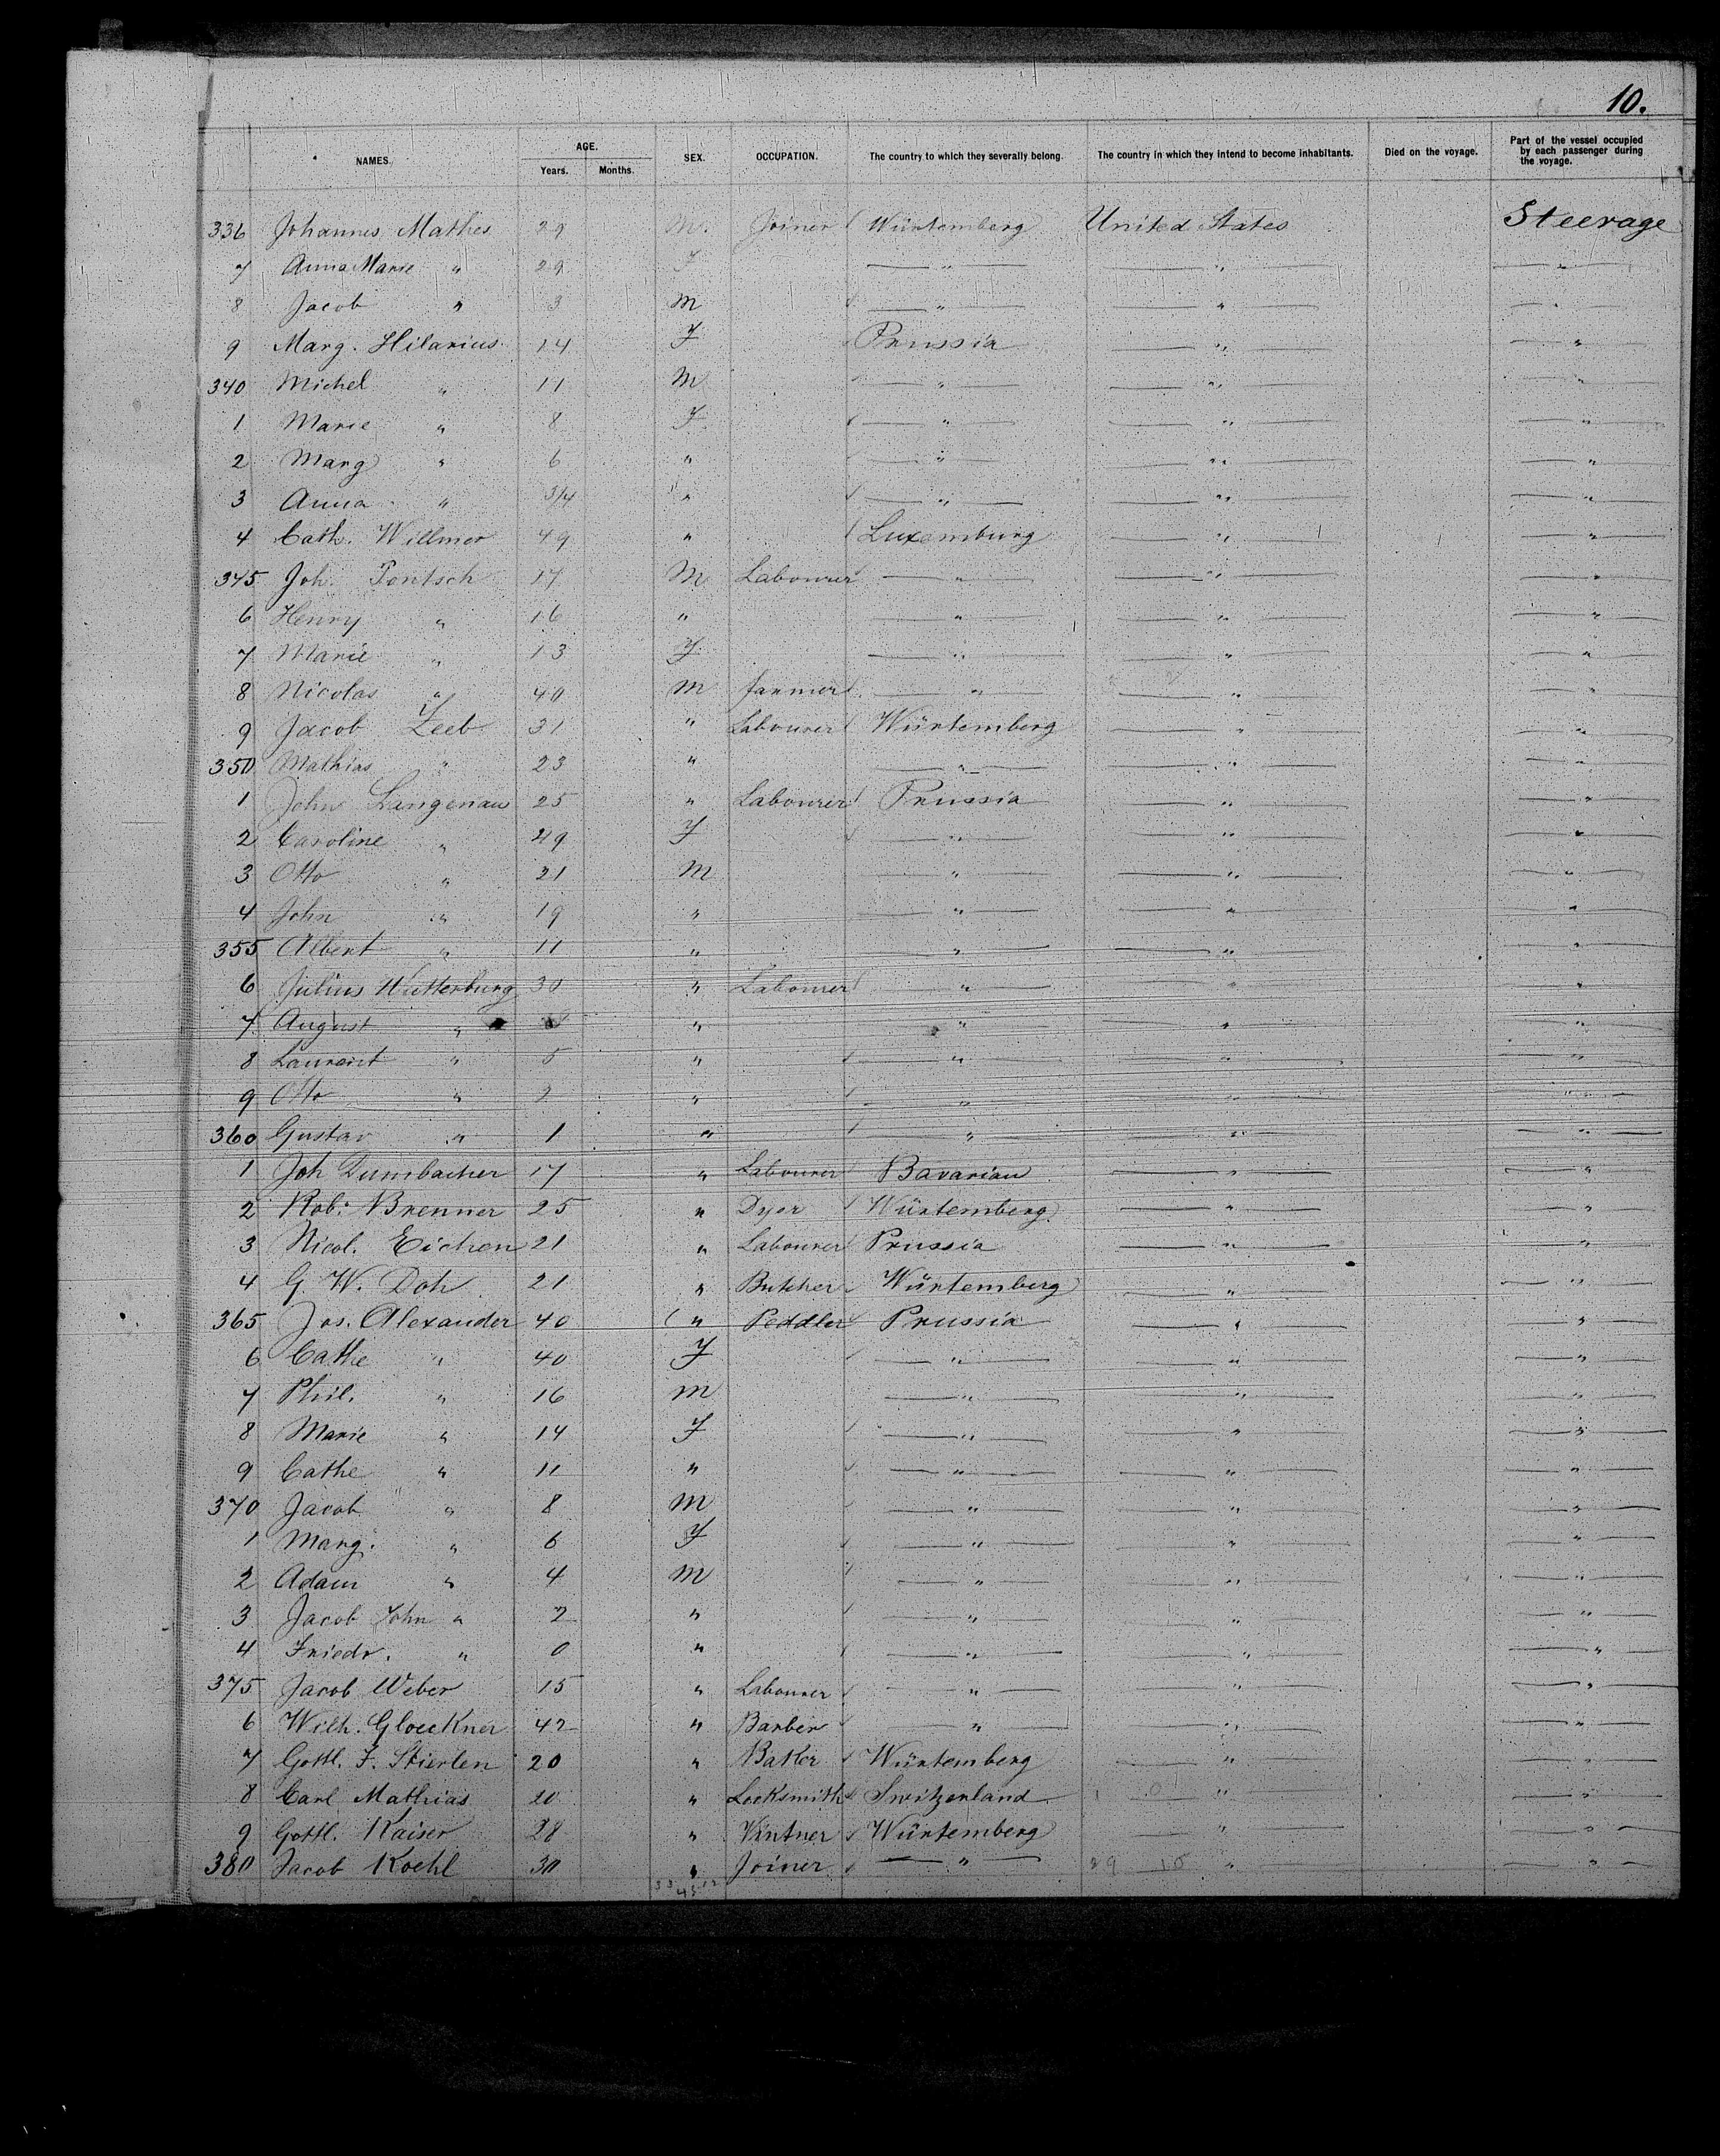 10.
NAMES. AGE. Years. Months. SEX. OCCUPATION. The country to which they severally belong. The country in which they intend to become inhabitants. Died on the voyage. Part of the vessel occupied by each passenger during the voyage.
336 Johannes Mathes 29 M. Joiner Würtemberg United States Steerage
7 Anna Marie " 29 F " " "
8 Jacob " 3 M " " "
9 Marg. Hilarius 14 F Prussia " "
340 Michel " 11 M " " "
1 Marie " 8 F " " "
2 Marg " 6 " " " "
3 Anna " 3/4 " " " "
4 Cath. Willmer 49 " Luxemburg " "
345 Joh. Pontsch 17 M Labourer " " "
6 Henry " 16 " " " "
7 Marie " 13 F " " "
8 Nicolas " 40 M farmer " " "
9 Jacob Zeeb 31 " Labourer Würtemberg " "
350 Mathias " 23 " " " "
1 John Langenau 25 " Labourer Prussia " "
2 Caroline " 49 F " " "
3 Otto " 21 M " " "
4 John " 19 " " " "
355 Albert " 11 " " " "
6 Julius Wutterburg 30 " Labourer " " "
7 August " " " " "
8 Laurent " 5 " " " "
9 Otto " 2 " " " "
360 Gustav " 1 " " " "
1 Joh Dumbacher 17 " Labourer Bavarian " "
2 Rob: Brenner 25 " Dyer Würtemberg " "
3 Nicol. Eichen 21 " Labourer Prussia " "
4 G. W. Doh 21 " Butcher Würtemberg " "
365 Jos. Alexander 40 " Peddler Prussia " "
6 Cathe " 40 F " " "
7 Phil. " 16 M " " "
8 Marie " 14 F " " "
9 Cathe " 11 " " " "
370 Jacob " 8 M " " "
1 Marg. " 6 F " " "
2 Adam " 4 M " " "
3 Jacob John " 2 " " " "
4 Friedr. " 0 " " " "
375 Jacob Weber 15 " Labourer " " "
6 Wilh. Gloeckner 42 " Barber " " "
7 Gottl. F. Stierlen 20 " Baker Würtemberg " "
8 Carl Mathias 20 " Locksmith Switzerland " "
9 Gottl. Kaiser 28 " Vintner Würtemberg " "
380 Jacob Koehl 30 " Joiner " " "